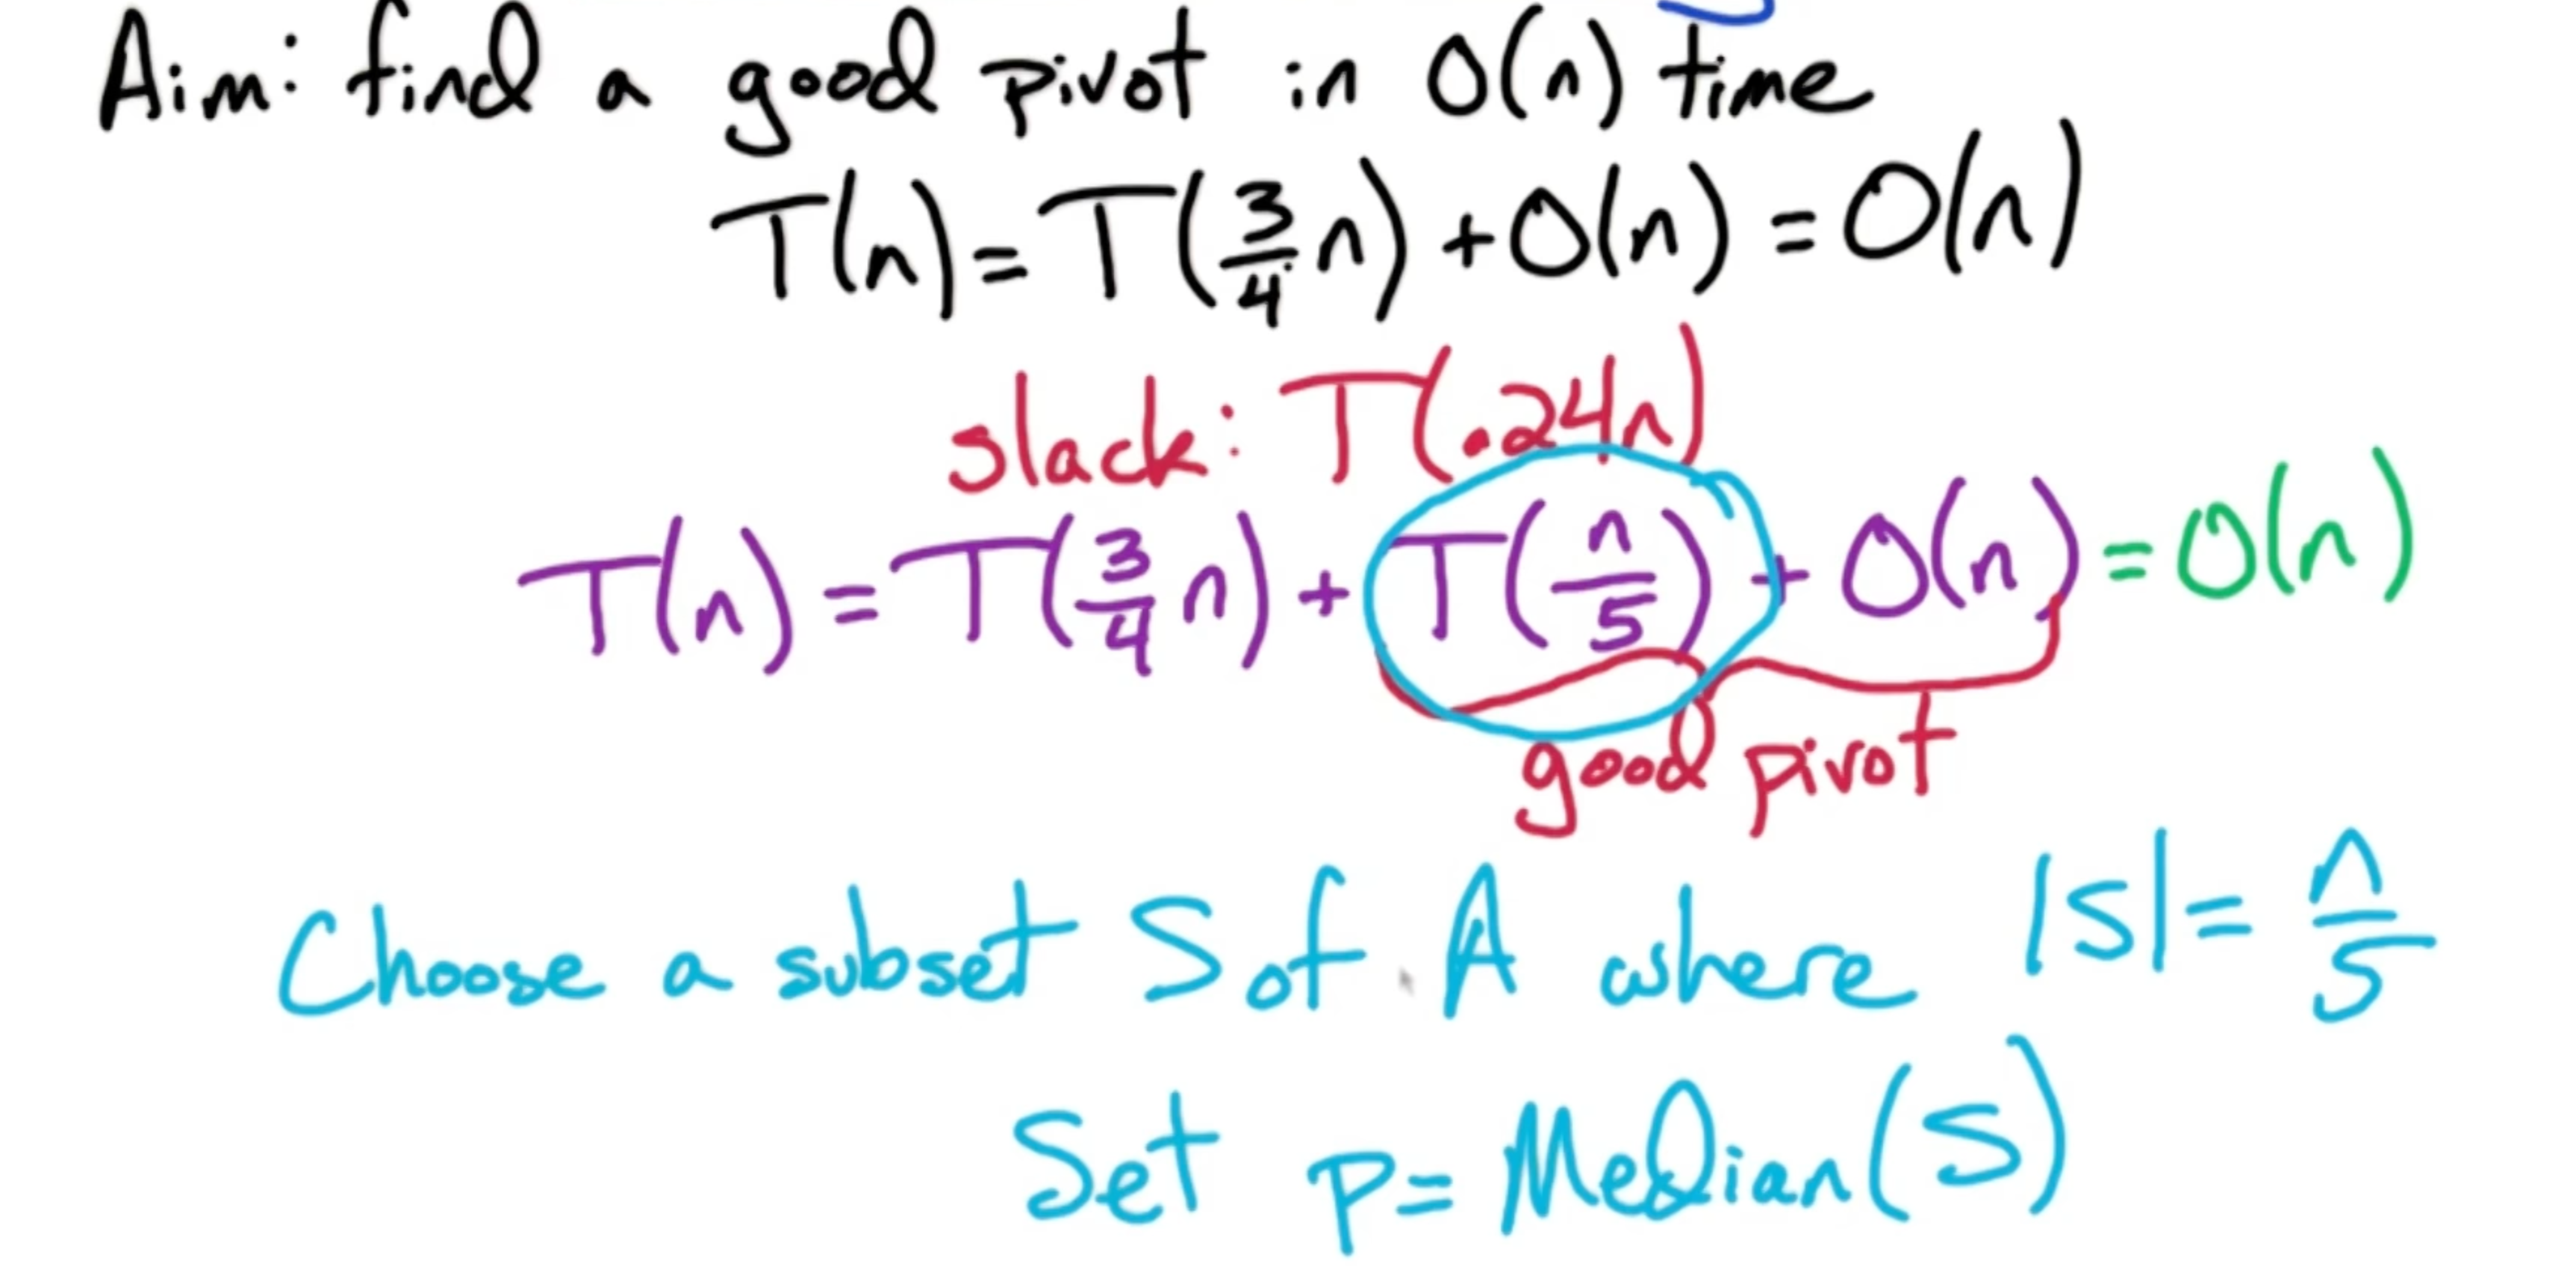 Aim: find a good pivot in O(n) time
T(n) = T(3/4 n) + O(n) = O(n)
slack: T(.24n)
T(n) = T(3/4 n) + T(n/5) + O(n) = O(n)
good pivot
Choose a subset S of A where |S| = n/5
Set p = Median(S)